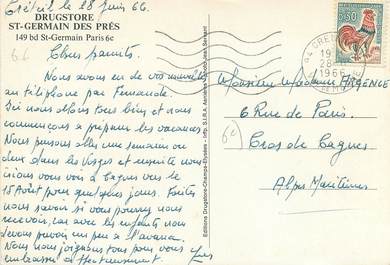 Créteil le 28 juin 66.
DRUGSTORE
ST-GERMAIN DES PRÉS
149 bd St-Germain Paris 6e
66
Chers parents,
Nous avons eu de vos nouvelles
au téléphone par Fernande.
Ici nous allons tous bien et nous
commençons à préparer les vacances
Nous pensons aller une semaine ou
deux dans les Vosges et ensuite nous
irions vous voir à Cagnes vers le
18 Août pour quelques jours. Faites
nous savoir si vous pourrez nous
recevoir, car avec les enfants nous
devons prévoir un peu à l'avance.
Nous nous joignons tous pour vous
embrasser affectueusement.
Editions Drugstore-Champs-Elysées - Imp. S.I.R.A. Asnières
0,30
CRETEIL
19
28-
1966
Monsieur et Madame ARGENCE
6 Rue de Paris.
Cros de Cagnes
Alpes Maritimes
6€